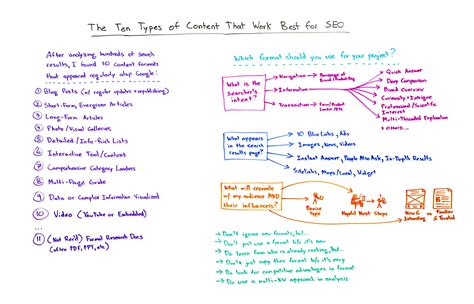 The Ten Types of Content That Work Best for SEO
After analyzing hundreds of search
results, I found 10 content formats
that appeared regularly atop Google:
① Blog Posts (w/ regular updates + republishing)
② Short-Form, Evergreen Articles
③ Long-Form Articles
④ Photo/Visual Galleries
⑤ Detailed/Info-Rich Lists
⑥ Interactive Tool/Content
⑦ Comprehensive Category Landers
⑧ Multi-Page Guide
⑨ Data or Complex Information Visualized
⑩ Video (YouTube or Embedded)
...
⑪ (Not Rec'd) Formal Research Docs
(often PDF, PPT, etc)
Which format should you use for your project?
What is the
searcher's
intent?
Navigation
Information
Transaction
Quick Answer
Deep Comparison
Broad Overview
Curiosity + Intrigue
Professional/Scientific
Interest
Multi-Threaded Exploration
+ others...
What appears
in the search
results page?
10 Blue Links, Ads
Images, News, Videos
Instant Answer, People Also Ask, In-Depth Results
SiteLinks, Maps/Local, Widget
What will resonate
w/ my audience AND
their influencers?
Device
Type
Hopeful Next Steps
New &
Interesting
vs
Familiar
& Trusted
Don't ignore new formats, but...
Don't just use a format b/c it's new
Do learn from who is already ranking, but...
Don't just copy their format b/c it's easy
Do look for competitive advantages in format
Do use a multi-KW approach in analysis